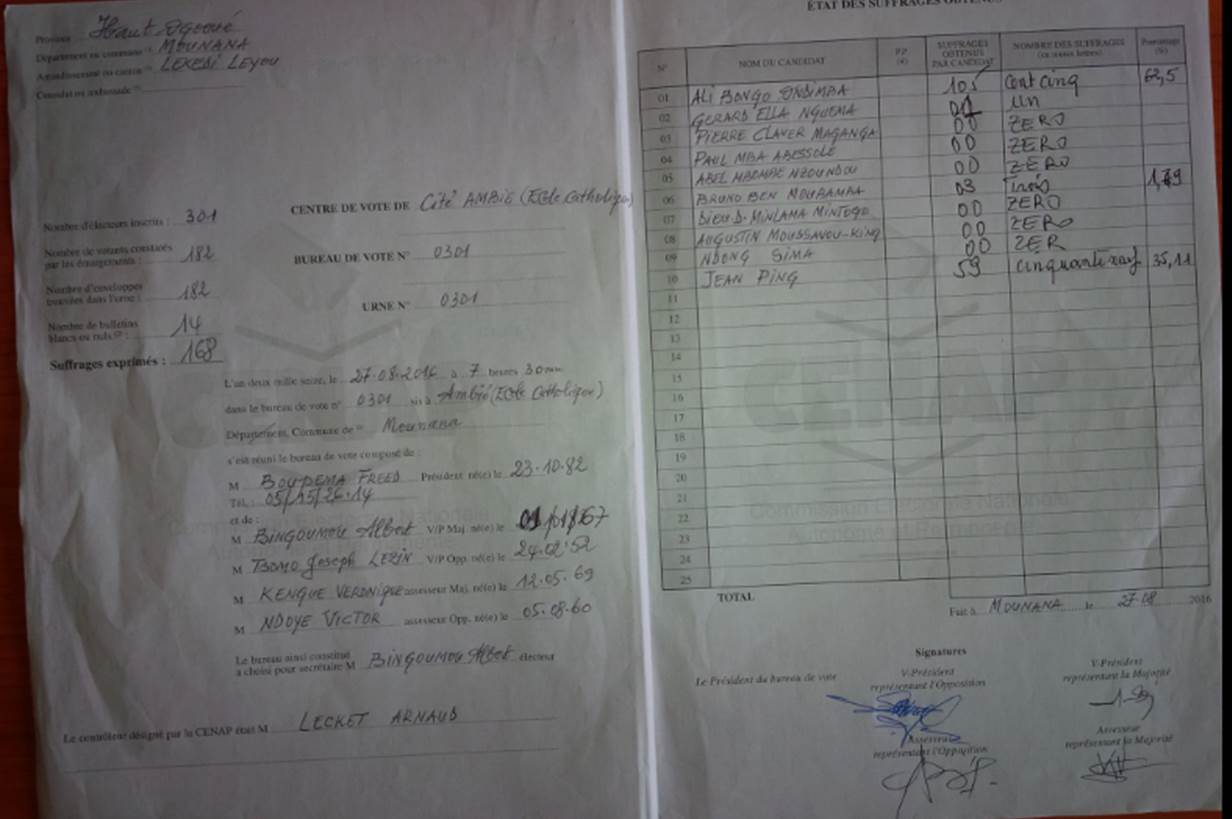 Province Haut Ogooué
Département ou commune MOUNANA
Arrondissement ou canton LEKEDI LEYOU
Consulat ou ambassade
Nombre d'électeurs inscrits : 301
Nombre de votants constatés
par les émargements : 182
Nombre d'enveloppes
trouvées dans l'urne : 182
Nombre de bulletins
blancs ou nuls : 14
Suffrages exprimés : 168
CENTRE DE VOTE DE Cité AMBIE (Ecole Catholique)
BUREAU DE VOTE N° 0301
URNE N° 0301
L'an deux mille seize, le 27.08.2016 à 7 heures 30 mn
dans le bureau de vote n° 0301 sis à Ambié (Ecole Catholique)
Département, Commune de Mounana
s'est réuni le bureau de vote composé de :
M BOUDEMA FREED Président né(e) le 23.10.82
Tél. : 05/15/26.14
et de :
M BINGOUMOU Albert V/P Maj. né(e) le 01/01/67
M TSOMO Joseph LEZIN V/P Opp. né(e) le 24.02.52
M KENGUE VERONIQUE assesseur Maj. né(e) le 12.05.69
M NDOYE VICTOR assesseur Opp. né(e) le 05.08.60
Le bureau ainsi constitué
a choisi pour secrétaire M BINGOUMOU Albert électeur
Le contrôleur désigné par la CENAP étant M LECKET ARNAUD
ÉTAT DES SUFFRAGES OBTENUS
N° NOM DU CANDIDAT PP SUFFRAGES OBTENUS PAR CANDIDAT NOMBRE DES SUFFRAGES (en toutes lettres) Pourcentage (%)
01 ALI BONGO ONDIMBA 105 cent cinq 62,5
02 GERARD ELLA NGUEMA 01 un
03 PIERRE CLAVER MAGANGA 00 ZERO
04 PAUL MBA ABESSOLE 00 ZERO
05 ABEL MBOMBE NZOUNDOU 00 ZERO
06 BRUNO BEN MOUBAMBA 03 Trois 1,79
07 DIEU D. MINLAMA MINTOGO 00 ZERO
08 AUGUSTIN MOUSSAVOU-KING 00 ZERO
09 NDONG SIMA 00 ZER
10 JEAN PING 59 cinquante neuf 35,11
11
12
13
14
15
16
17
18
19
20
21
22
23
24
25
TOTAL
Fait à MOUNANA le 27.08 2016
Signatures
Le Président du bureau de vote
V-Président
représentant l'Opposition
V-Président
représentant la Majorité
Assesseur
représentant l'Opposition
Assesseur
représentant la Majorité
CENAP
Commission Electorale Nationale
Autonome et Permanente